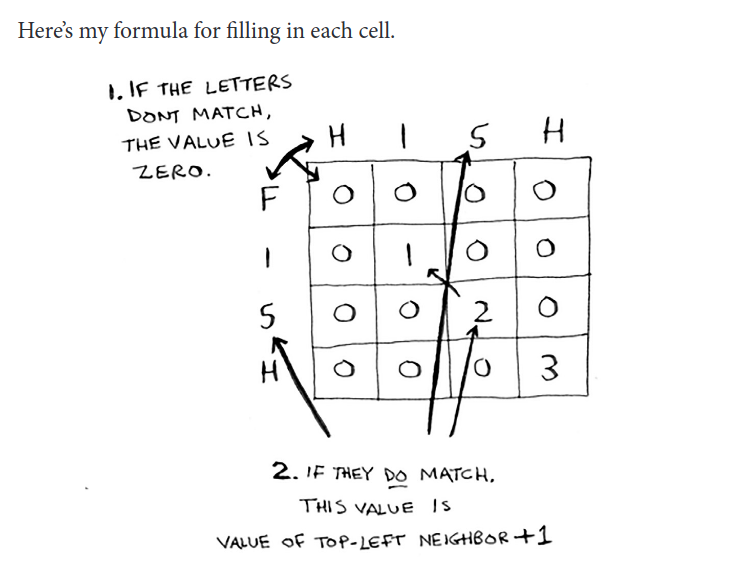 Here's my formula for filling in each cell.
1. IF THE LETTERS
DONT MATCH,
THE VALUE IS
ZERO.
H I S H
F 0 0 0 0
I 0 1 0 0
S 0 0 2 0
H 0 0 0 3
2. IF THEY DO MATCH.
THIS VALUE IS
VALUE OF TOP-LEFT NEIGHBOR +1